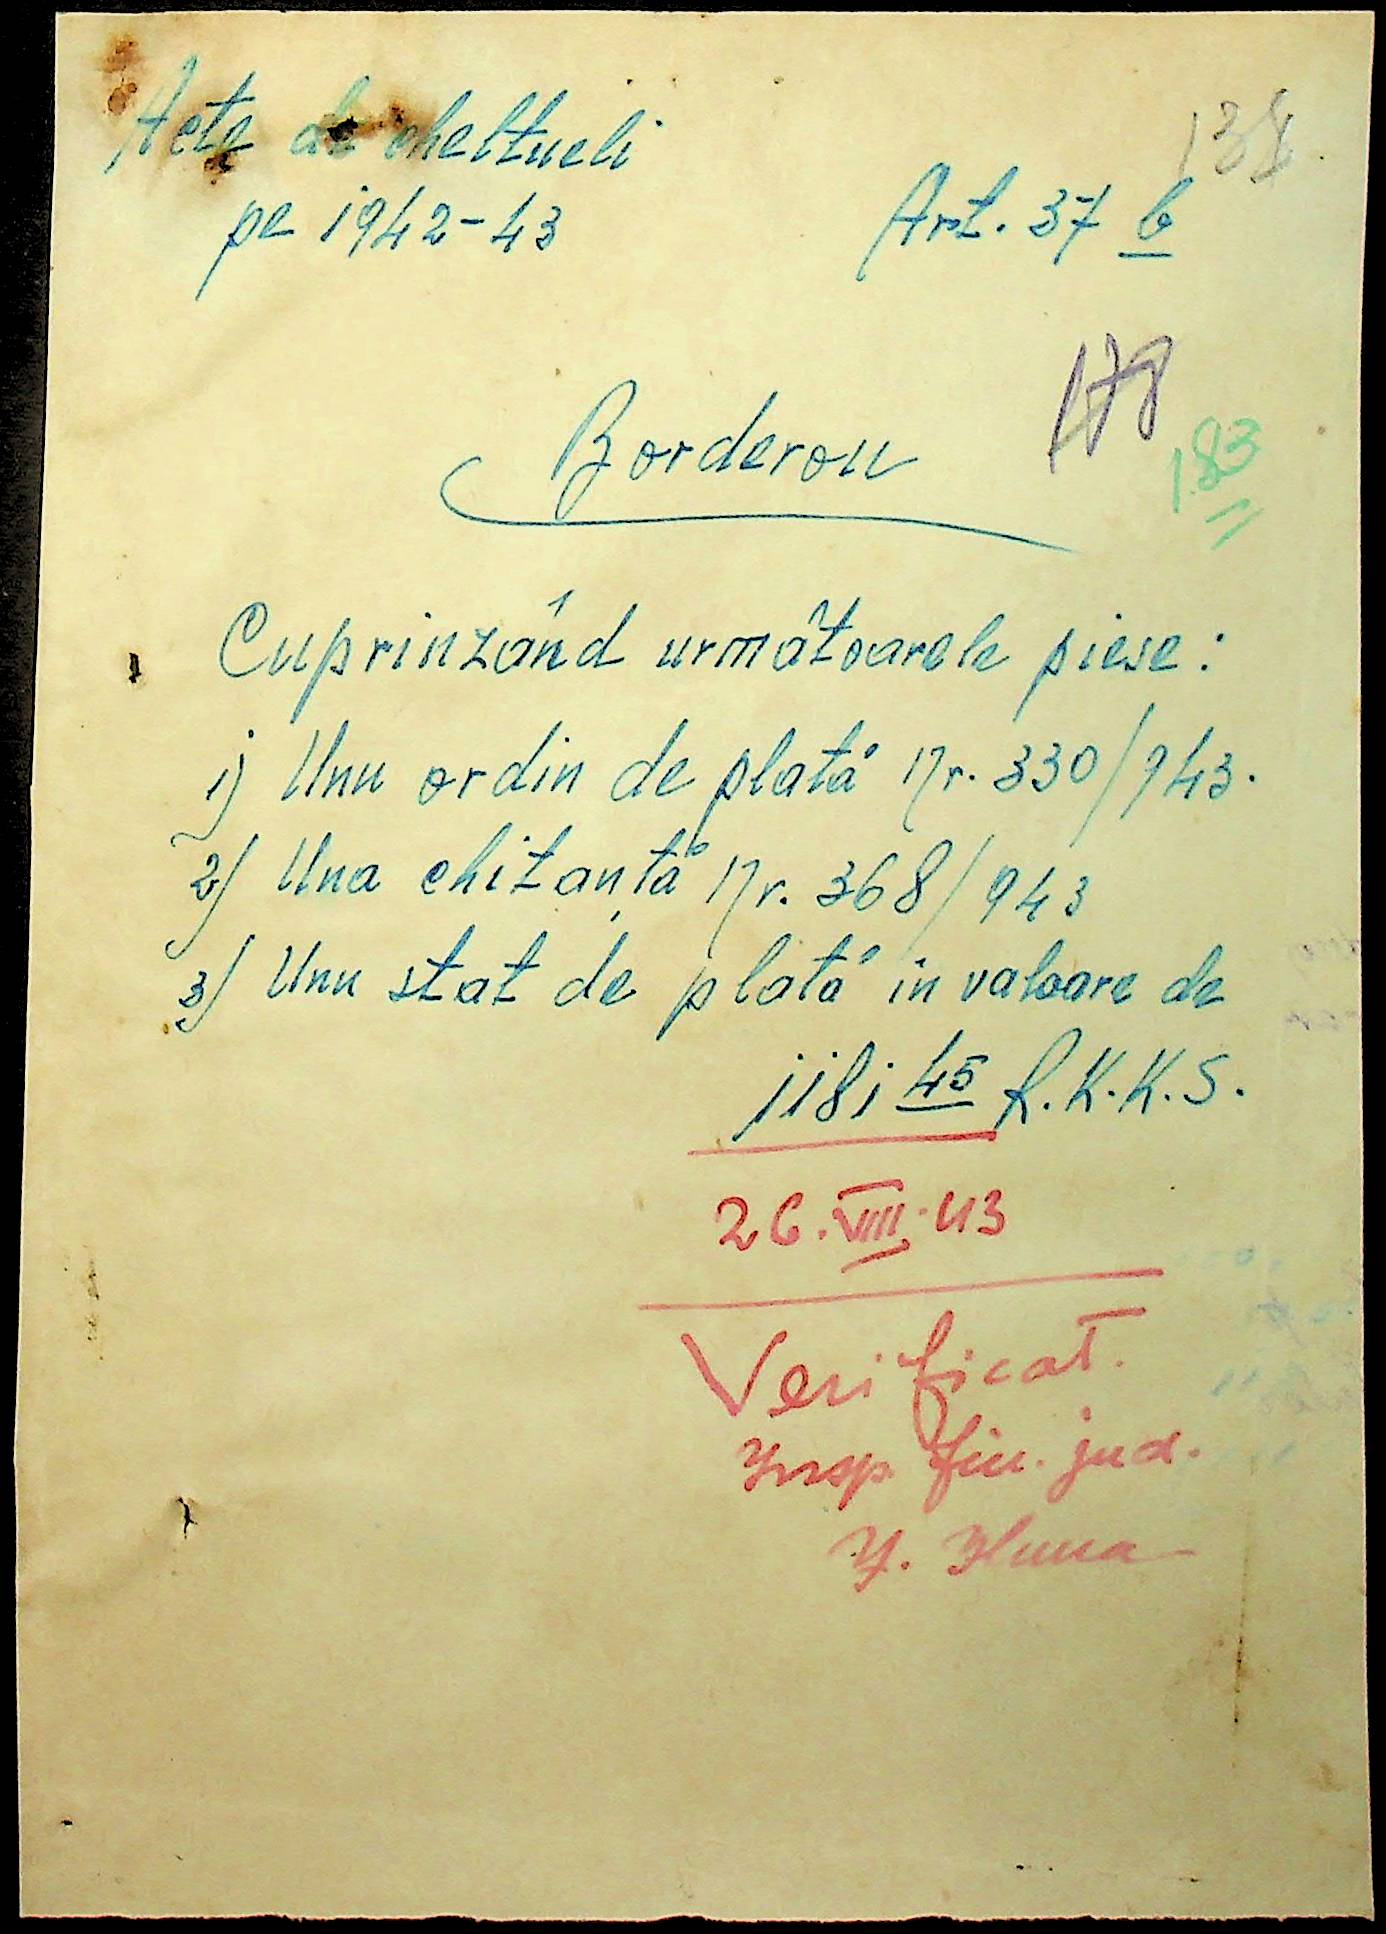 Acte de cheltueli
pe 1942-43
Art. 37 b
178
183
Borderou
Cuprinzând următoarele piese:
1) Unu ordin de plată Nr. 330/943.
2) Una chitanță Nr. 368/943
3) Unu stat de plată in valoare de
1181 45 R.K.K.S.
26.VIII.43
Verificat.
Insp. fin. jud.